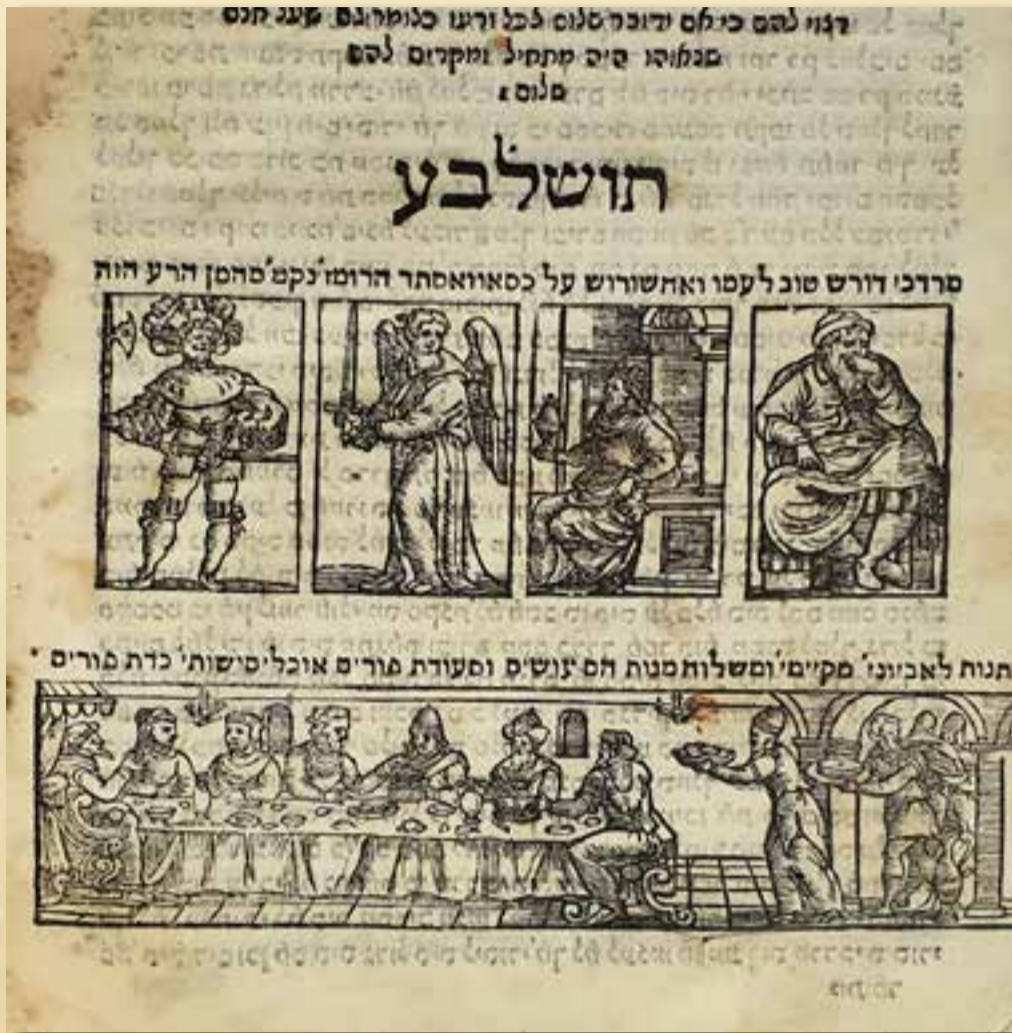 רצוי להם כי אם ידובר שלום לכל זרעו כלומר גם שעל חנם
שנאוהו היה מתחיל ומקדים להם
שלום :
תושלבע
מרדכי דורש טוב לעמו ואחשורוש על כסאו ואסתר הרומז' נקמ' מהמן הרע הזה
תנות לאביוני' מקיימי' ומשלוח מנות הם עושים וסעודת פורים אוכלי' ושותי' כדת פורים